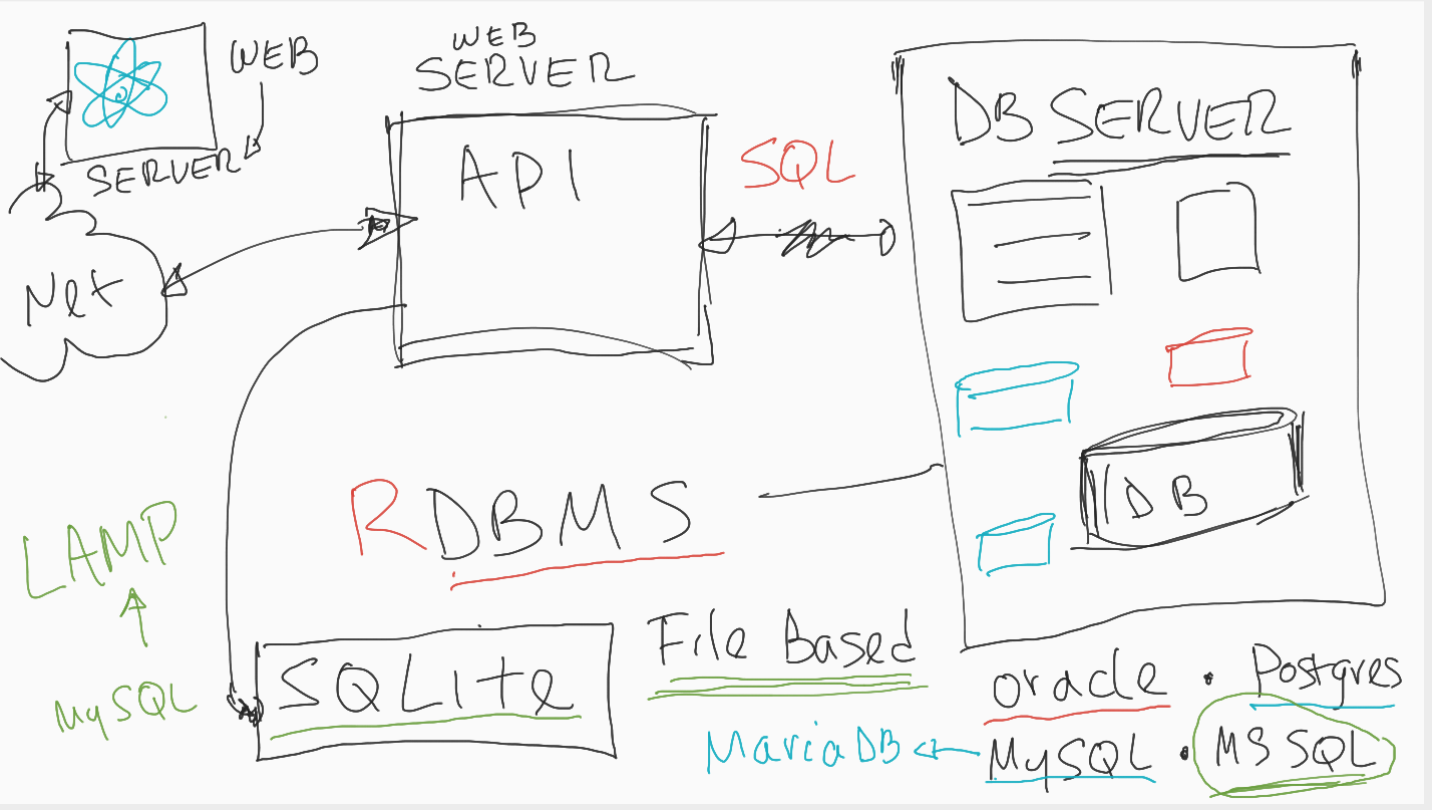 WEB
SERVER
WEB
SERVER
API
SQL
DB SERVER
Net
DB
RDBMS
LAMP
MySQL
SQLite
File Based
oracle · Postgres
MariaDB
MySQL · MS SQL